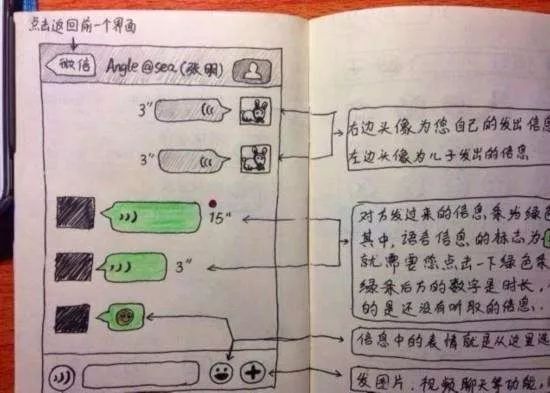 点击返回前一个界面
微信
Angle@sea(张明)
3"
3"
15"
3"
右边头像为您自己的发出信息
左边头像为儿子发出的信息
对方发过来的信息条为绿色
其中,语音信息的标志为
就需要您点击一下绿色条
绿条后方的数字是时长,
的是还没有听取的信息.
信息中的表情就是从这里选
发图片、视频聊天等功能,